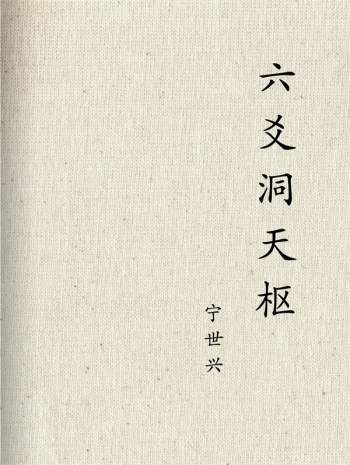 六爻洞天枢
宁世兴